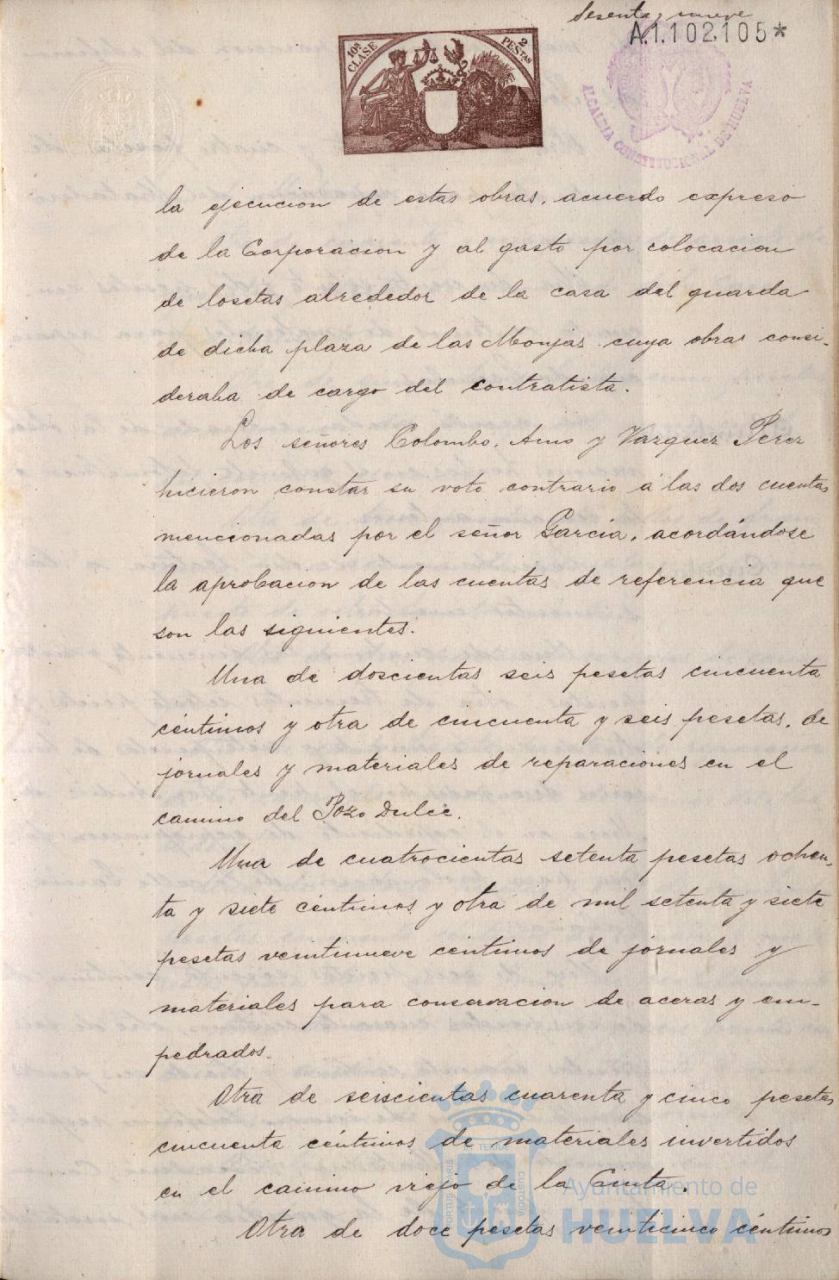 Sesenta y nueve
A.1.102.105*
10ª CLASE
2 PESTAS
ALCALDIA CONSTITUCIONAL DE HUELVA
la ejecucion de estas obras, acuerdo expreso
de la Corporacion y al gasto por colocacion
de losetas alrededor de la casa del guarda
de dicha plaza de las Monjas cuya obras consi-
deraba de cargo del contratista.
Los señores Colombo, Amo y Vazquez Perez
hicieron constar su voto contrario á las dos cuentas
mencionadas por el señor García, acordándose
la aprobacion de las cuentas de referencia que
son las siguientes:
Una de doscientas seis pesetas cincuenta
céntimos y otra de cincuenta y seis pesetas, de
jornales y materiales de reparaciones en el
camino del Pozo Dulce.
Una de cuatrocientas setenta pesetas ochen-
ta y siete céntimos y otra de mil setenta y siete
pesetas veintinueve céntimos de jornales y
materiales para conservacion de aceras y em-
pedrados.
Otra de seiscientas cuarenta y cinco pesetas
cincuenta céntimos de materiales invertidos
en el camino viejo de la Cinta.
Otra de doce pesetas veinticinco céntimos
Ayuntamiento de
HUELVA